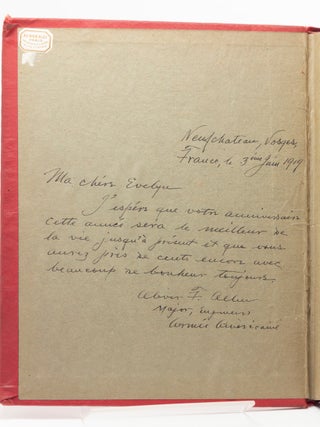 Neufchateau, Vosges,
France, le 3me Juin 1919
Ma chère Evelyn
J'espère que votre anniversaire
cette année sera le meilleur de
la vie jusqu'à présent et que vous
aurez près de cents encore avec
beaucoup de bonheur toujours.
F.
Major, Engineers
Armée Américaine